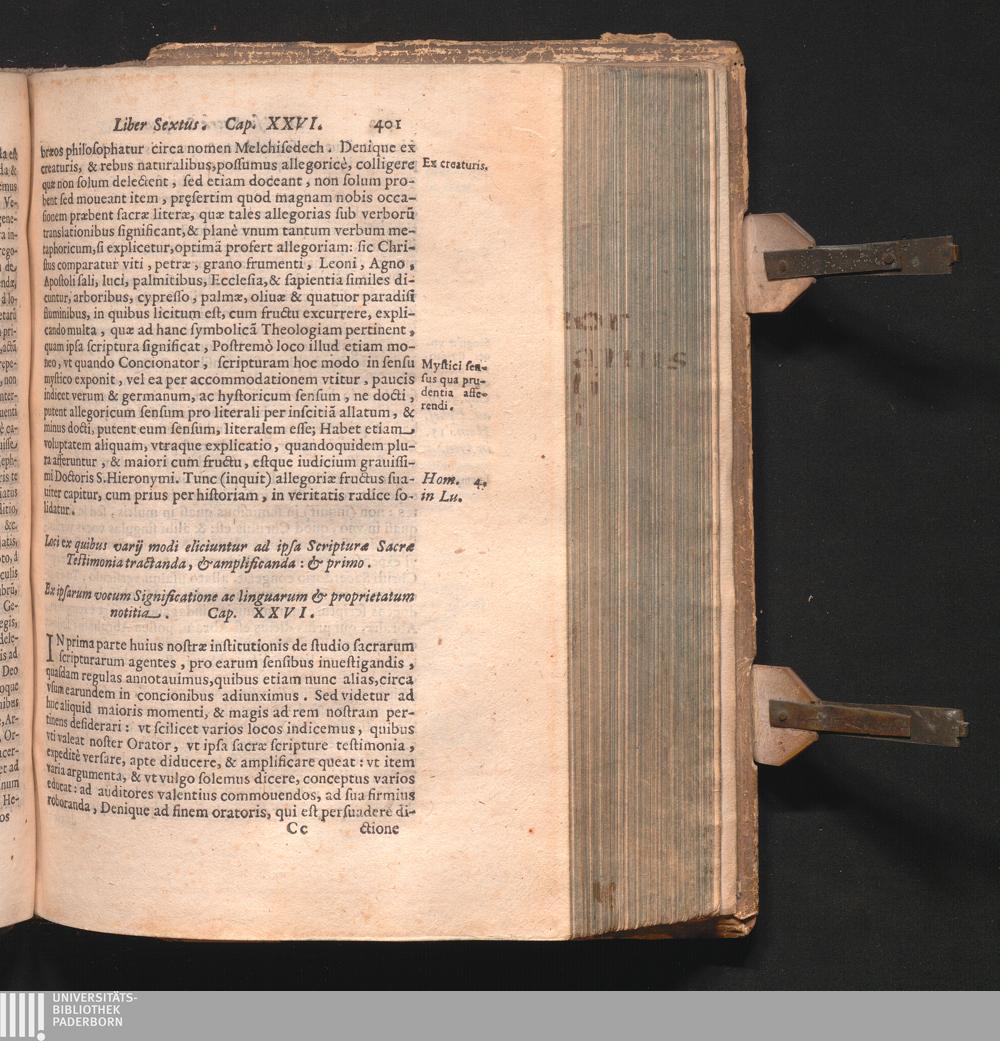 Liber Sextus. Cap. XXVI. 401
bræos philosophatur circa nomen Melchisedech. Denique ex
creaturis, & rebus naturalibus, possumus allegoricè, colligere
quæ non solum delectent, sed etiam doceant, non solum pro-
bent sed moueant item, pręsertim quòd magnam nobis occa-
sionem præbent sacræ literæ, quæ tales allegorias sub verborū
translationibus significant, & planè vnum tantum verbum me-
taphoricum, si explicetur, optimā profert allegoriam: sic Chri-
stus comparatur viti, petræ, grano frumenti, Leoni, Agno,
Apostoli sali, luci, palmitibus, Ecclesia, & sapientia similes di-
cuntur, arboribus, cypresso, palmæ, oliuæ & quatuor paradisi
fluminibus, in quibus licitum est, cum fructu excurrere, expli-
cando multa, quæ ad hanc symbolicā Theologiam pertinent,
quam ipsa scriptura significat, Postremò loco illud etiam mo-
neo, vt quando Concionator, scripturam hoc modo in sensu
mystico exponit, vel ea per accommodationem vtitur, paucis
indicet verum & germanum, ac hystoricum sensum, ne docti,
putent allegoricum sensum pro literali per inscitiā allatum, &
minus docti, putent eum sensum, literalem esse; Habet etiam
voluptatem aliquam, vtraque explicatio, quandoquidem plu-
ra afferuntur, & maiori cum fructu, estque iudicium grauissi-
mi Doctoris S. Hieronymi. Tunc (inquit) allegoriæ fructus sua-
uiter capitur, cum prius per historiam, in veritatis radice so-
lidatur.
Ex creaturis.
Mystici sen-
sus qua pru-
dentia asse-
rendi.
Hom. 4.
in Lu.
Loci ex quibus varij modi eliciuntur ad ipsa Scripturæ Sacræ
Testimonia tractanda, & amplificanda: & primo.
Ex ipsarum vocum Significatione ac linguarum & proprietatum
notitia. Cap. XXVI.
IN prima parte huius nostræ institutionis de studio sacrarum
scripturarum agentes, pro earum sensibus inuestigandis,
quasdam regulas annotauimus, quibus etiam nunc alias, circa
vsum earundem in concionibus adiunximus. Sed videtur ad
huc aliquid maioris momenti, & magis ad rem nostram per-
tinens desiderari: vt scilicet varios locos indicemus, quibus
vti valeat noster Orator, vt ipsa sacræ scripture testimonia,
expeditè versare, apte diducere, & amplificare queat: vt item
varia argumenta, & vt vulgo solemus dicere, conceptus varios
educat: ad auditores valentius commouendos, ad sua firmius
roboranda, Denique ad finem oratoris, qui est persuadere di-
Cc ctione
UNIVERSITÄTS-
BIBLIOTHEK
PADERBORN